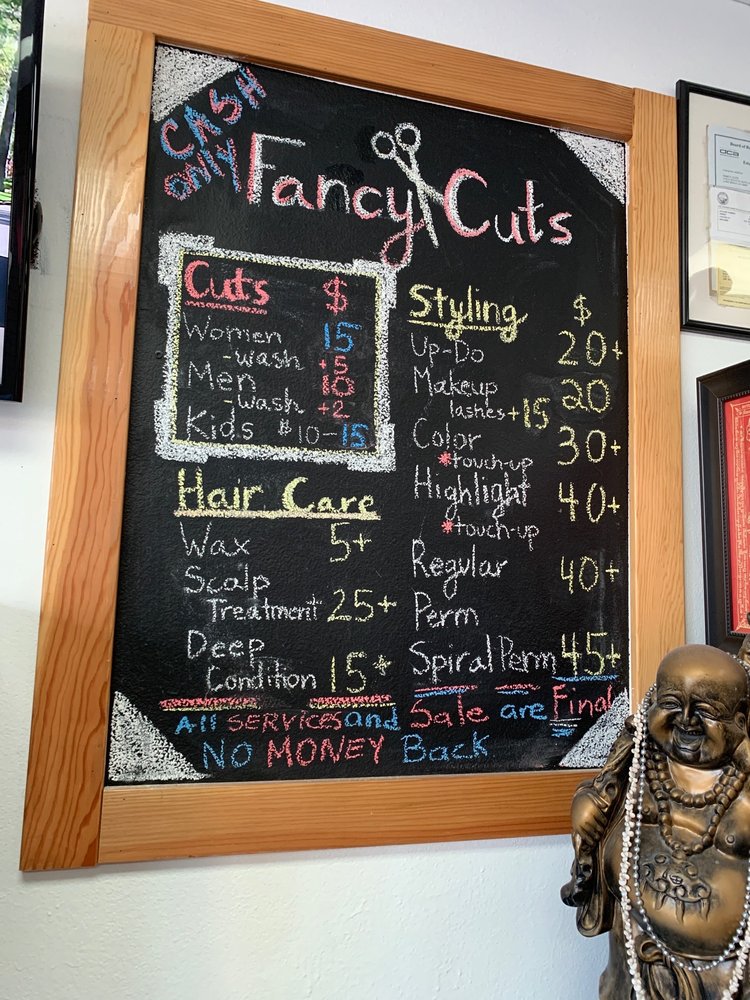 CASH
only
Fancy Cuts
Cuts $
Women 15
-wash +5
Men 10
-wash +2
Kids $10-15
Hair Care
Wax 5+
Scalp
Treatment 25+
Deep
Condition 15+
Styling $
Up-Do 20+
Makeup 20
lashes +15
Color 30+
*touch-up
Highlight 40+
*touch-up
Regular 40+
Perm
Spiral Perm 45+
All SERVICES and Sale are Final
NO MONEY Back